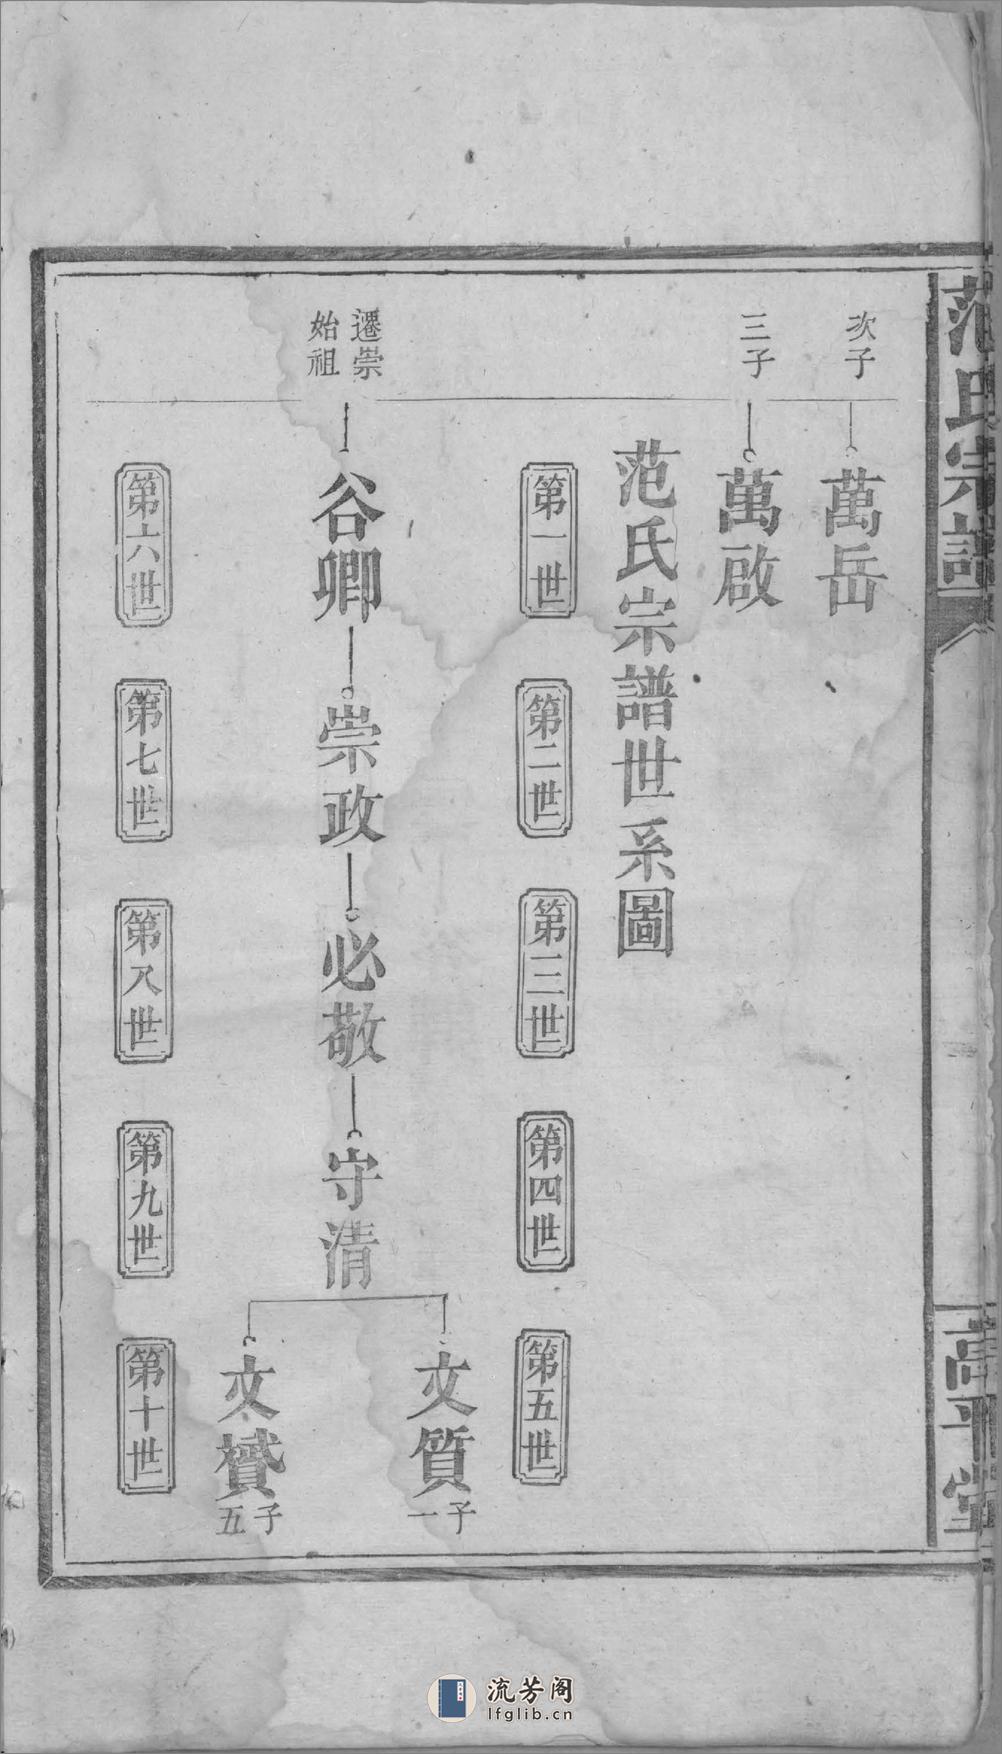 范氏宗譜
高平堂
次子
萬岳
三子
萬啟
范氏宗譜世系圖
第一世
第二世
第三世
第四世
第五世
遷崇
始祖
谷卿
崇政
必敬
守清
文質
子一
文贇
子五
第六世
第七世
第八世
第九世
第十世
流芳阁
lfglib.cn